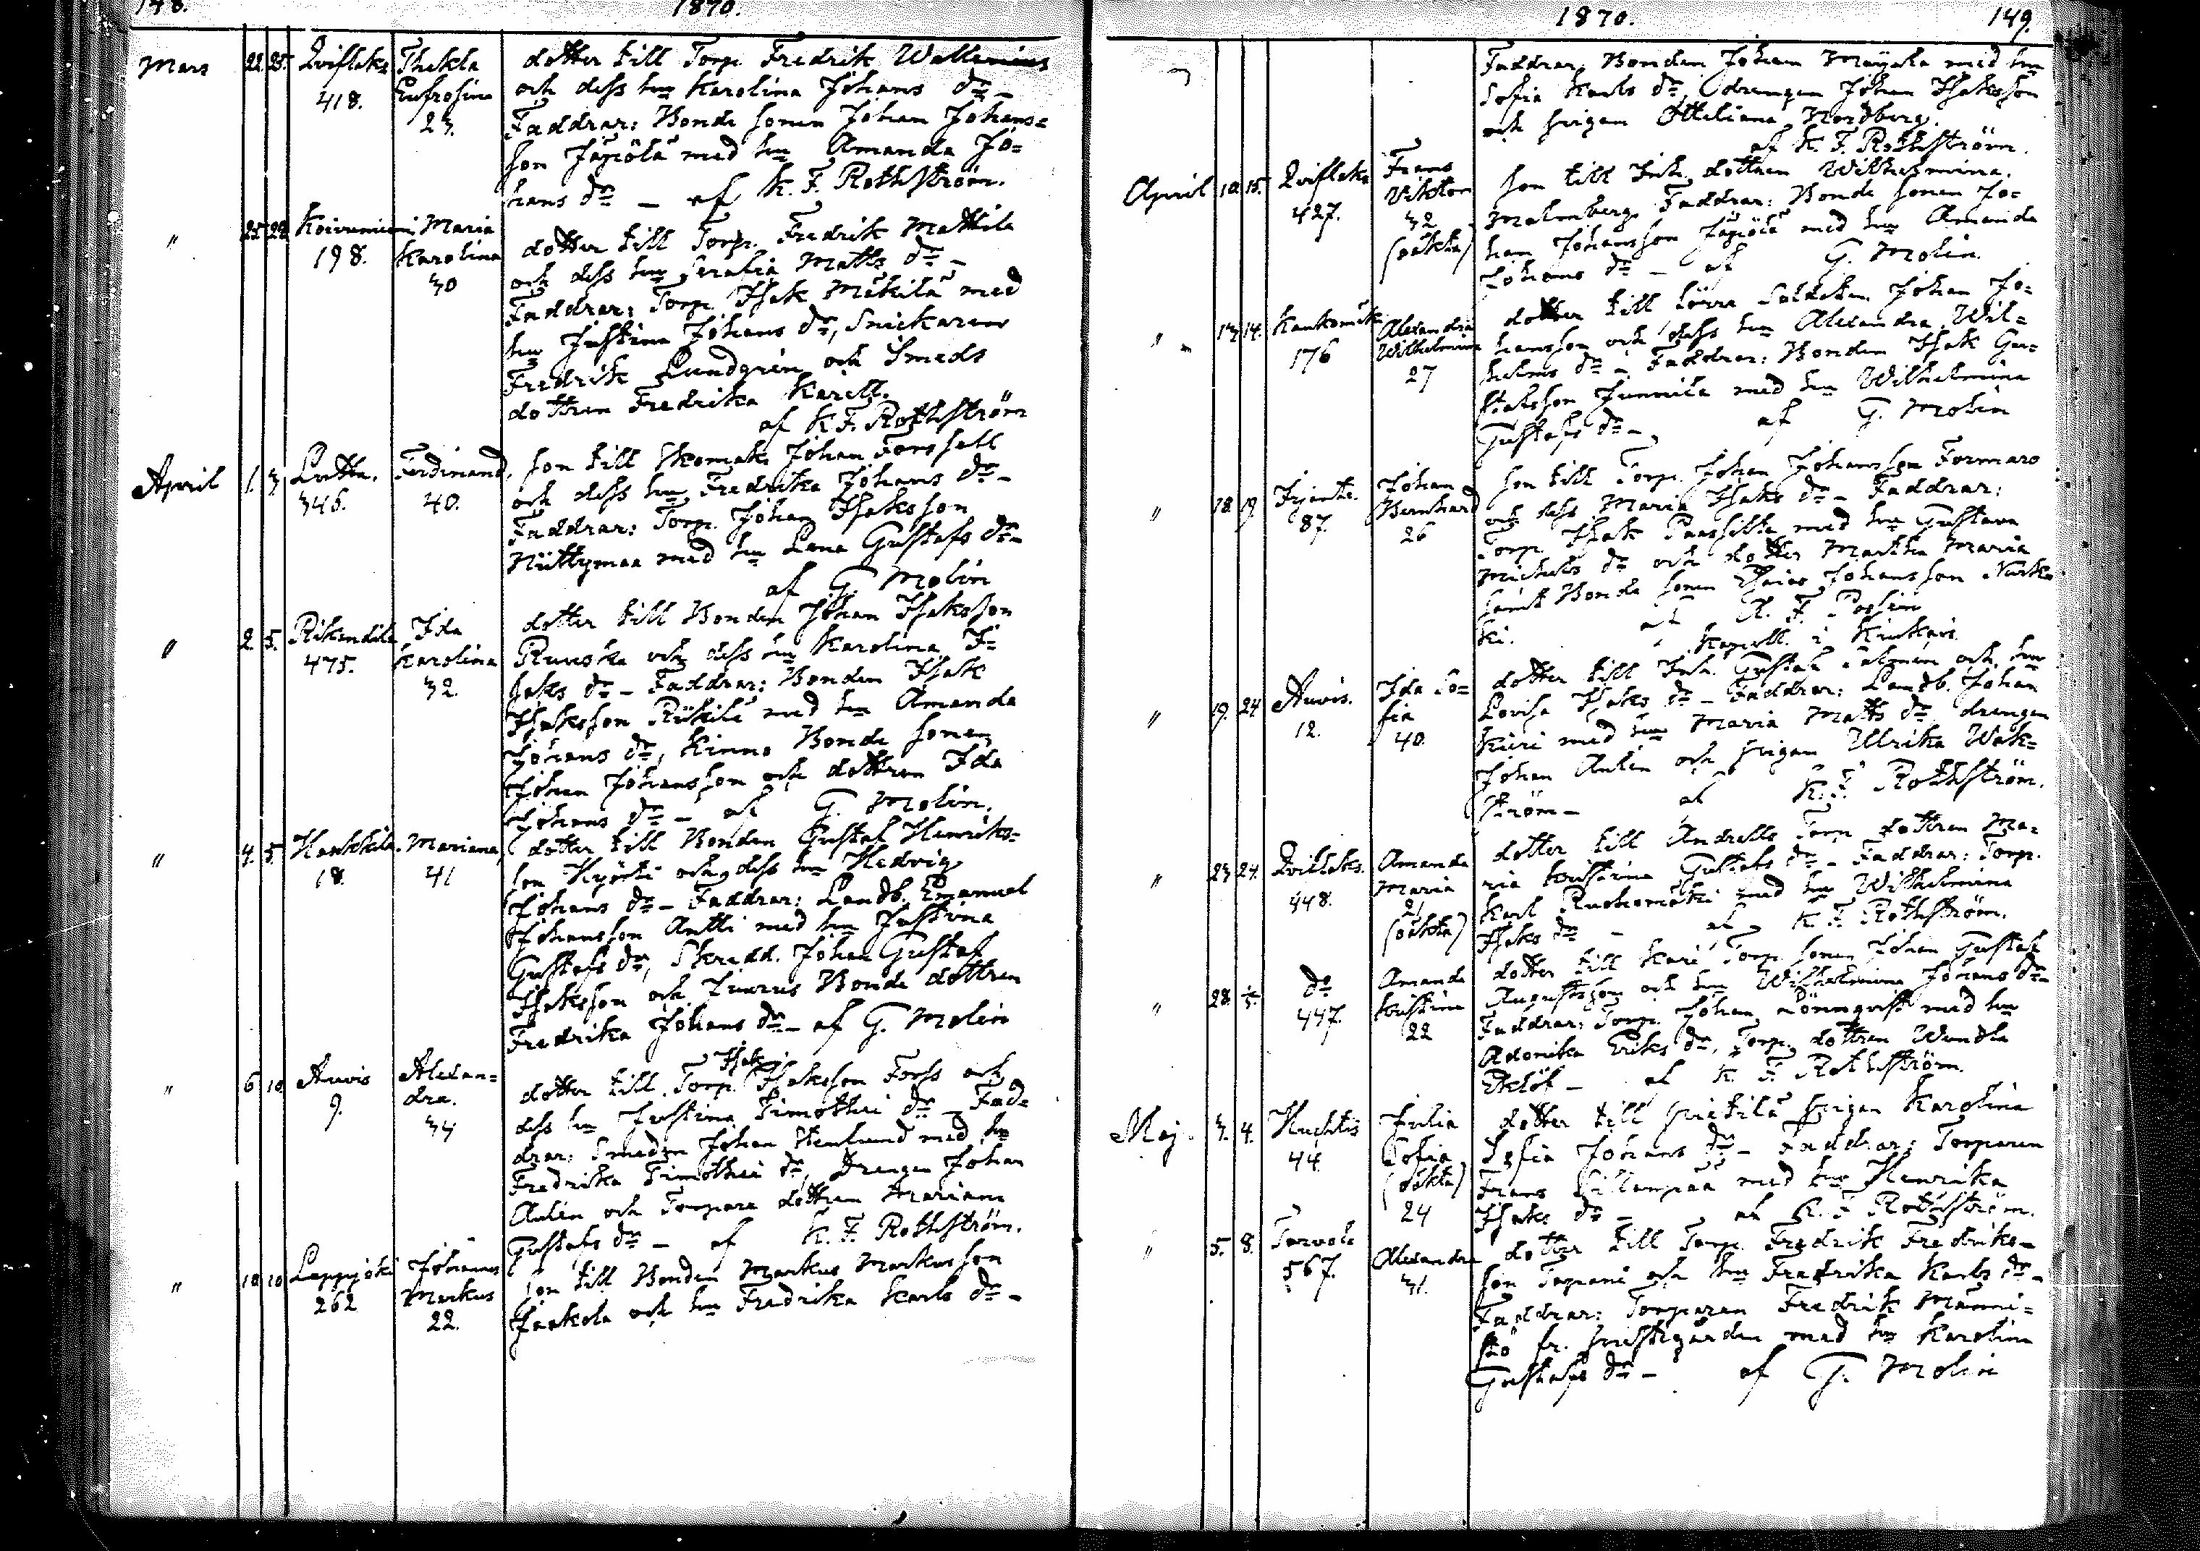 148.
1870.
Mars 22 25. Qviflaks 418. Thekla Eufrosina 23.
dotter till Torp. Fredrik Wallenius
och dess hu Karolina Johans dr –
Faddrar: Bonde sonen Johan Johans=
son Jäpölä med hu Amanda Jo=
hans dr – af K. F. Rothström.
" 25 29 198. Maria Karolina 30
dotter till Torp. Fredrik Mattila
och dess hu Serafia Matts dr –
Faddrar: Torp. Isak Mäkilä med
hu Justina Johans dr, Snickaren
Fredrik Lundgrén och Smeds
dottren Fredrika Karell.
af K. F. Rothström
April 1. 3 345. Ferdinand. 40.
son till Skomak. Johan Forssell
och dess hu Fredrika Johans dr –
Faddrar: Torp. Johan Isaksson
Niittymaa med hu Lena Gustafs dr –
af G. Molin
" 2 5. 475. Ida Karolina 32.
dotter till Bonden Johan Isaksson
Ruuska och dess hu Karolina I=
saks dr – Faddrar: Bonden Isak
Isaksson Riikilä med hu Amanda
Johans dr, Kinno Bonde sonen
Johan Johansson och dottren Ida
Johans dr – af G. Molin.
" 4. 5. 18. Mariana 41
dotter till Bonden Gustaf Henriks=
son Kyösti och dess hu Hedvig
Johans dr – Faddrar: Landb. Emanuel
Johansson Antti med hu Justina
Gustafs dr, Skrädd. Johan Gustaf
Isaksson och Bonde dottren
Fredrika Johans dr – af G. Molin
" 6 10. Auvis 9. Alexan= dra. 34
Isak
dotter till Torp. Isaksson Forss och
dess hu Justina Timothei dr – Fad=
drar: Smeden Johan Stenlund med hu
Fredrika Timothei dr, Drengen Johan
Aulén och Torpare dottren Mariana
Gustafs dr – af K. F. Rothström.
" 10 10 Lappijoki 262 Johannes Markus 22.
son till Bonden Markus Markusson
Jaakola och hu Fredrika Karls dr –
1870.
149.
Faddrar: Bonden Johan Mäyälä med hu
Sofia Karls dr, drengen Johan Isaksson
och pigan Ottiliana Nordberg.
af K. F. Rothström.
April 10. 15. Qviflaks 427. Frans Viktor 32 (oäkta)
son till Inh. dottren Wilhelmina
Malmberg. Faddrar: Bonde sonen Jo=
han Johansson Jäpölä med hu Amanda
Johans dr – af G. Molin.
" 13 14. 176 Alexandra Wilhelmina 27
dotter till Soldaten Johan Jo=
hansson och dess hu Alexandra Wil=
helms dr – Faddrar: Bonden Isak Gu=
stafsson Junnila med hu Wilhelmina
Gustafs dr – af G. Molin
" 18 19. 87. Johan Bernhard 26
son till Torp. Johan Johansson Formaro
och dess Maria Isaks dr – Faddrar:
Torp. Isak Paassilta med hu Gustava
Michels dr och dotter Martha Maria
samt Bonde sonen Esaias Johansson Nurk=
ki. af A. F.
Kapell. i Kiukais.
" 19. 24 Auvis. 12. Ida So= fia 40.
dotter till Inh. Gustaf och hu
Lovisa Isaks dr – Faddrar: Landb. Johan
Kieri med hu Maria Matts dr, drengen
Johan Aulén och pigan Ulrika Wak=
ström – af K. F. Rothström.
" 23 24. Qviflaks. 448. Amanda Maria 21 (oäkta)
dotter till Torp. dottren Ma=
ria Kristina Gustafs dr – Faddrar: Torp.
Karl Ruohomäki med hu Wilhelmina
Isaks dr – af K. F. Rothström.
" 28. do 447. Amanda Kristina 22
dotter till Kari Torp. sonen Johan Gustaf
Augustsson och hu Wilhelmina Johans dr –
Faddrar: Torp. Johan Lönnqvist med hu
Adonika Eriks dr, Torp. dottren Wendla
Eklöf – af K. F. Rothström.
Maj. 3. 4. Huhtis 44. Julia Sofia (oäkta) 24
dotter till pigan Karolina
Sofia Johans dr – Faddrar: Torparen
Frans Sillanpää med hu Henrika
Isaks dr – af K. F. Rothström.
" 5. 8. 567. Alexandra 31.
dotter till Torp. Fredrik Fredriks=
son Tapani och hu Fredrika Karls dr –
Faddrar: Torparen Fredrik Männi=
stö fr. prestgården med hu Karolina
Gustafs dr – af G. Molin